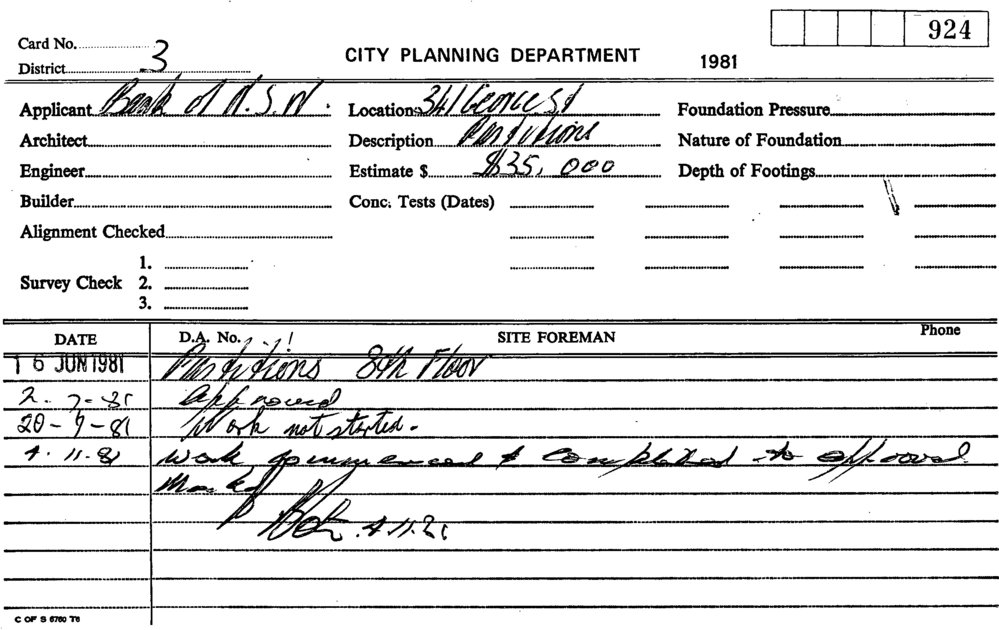 924
Card No.
District 3
CITY PLANNING DEPARTMENT 1981
Applicant Bank of N.S.W. Location 341 George St Foundation Pressure
Architect Description Partitions Nature of Foundation
Engineer Estimate $ $35,000 Depth of Footings
Builder Conc. Tests (Dates)
Alignment Checked
1.
Survey Check 2.
3.
DATE D.A. No. SITE FOREMAN Phone
16 JUN 1981 Partitions 8th Floor
2-7-81 Approved
20-9-81 Work not started.
4.11.81 Work commenced & completed to approval
4.11.81
C OF S 6760 T6